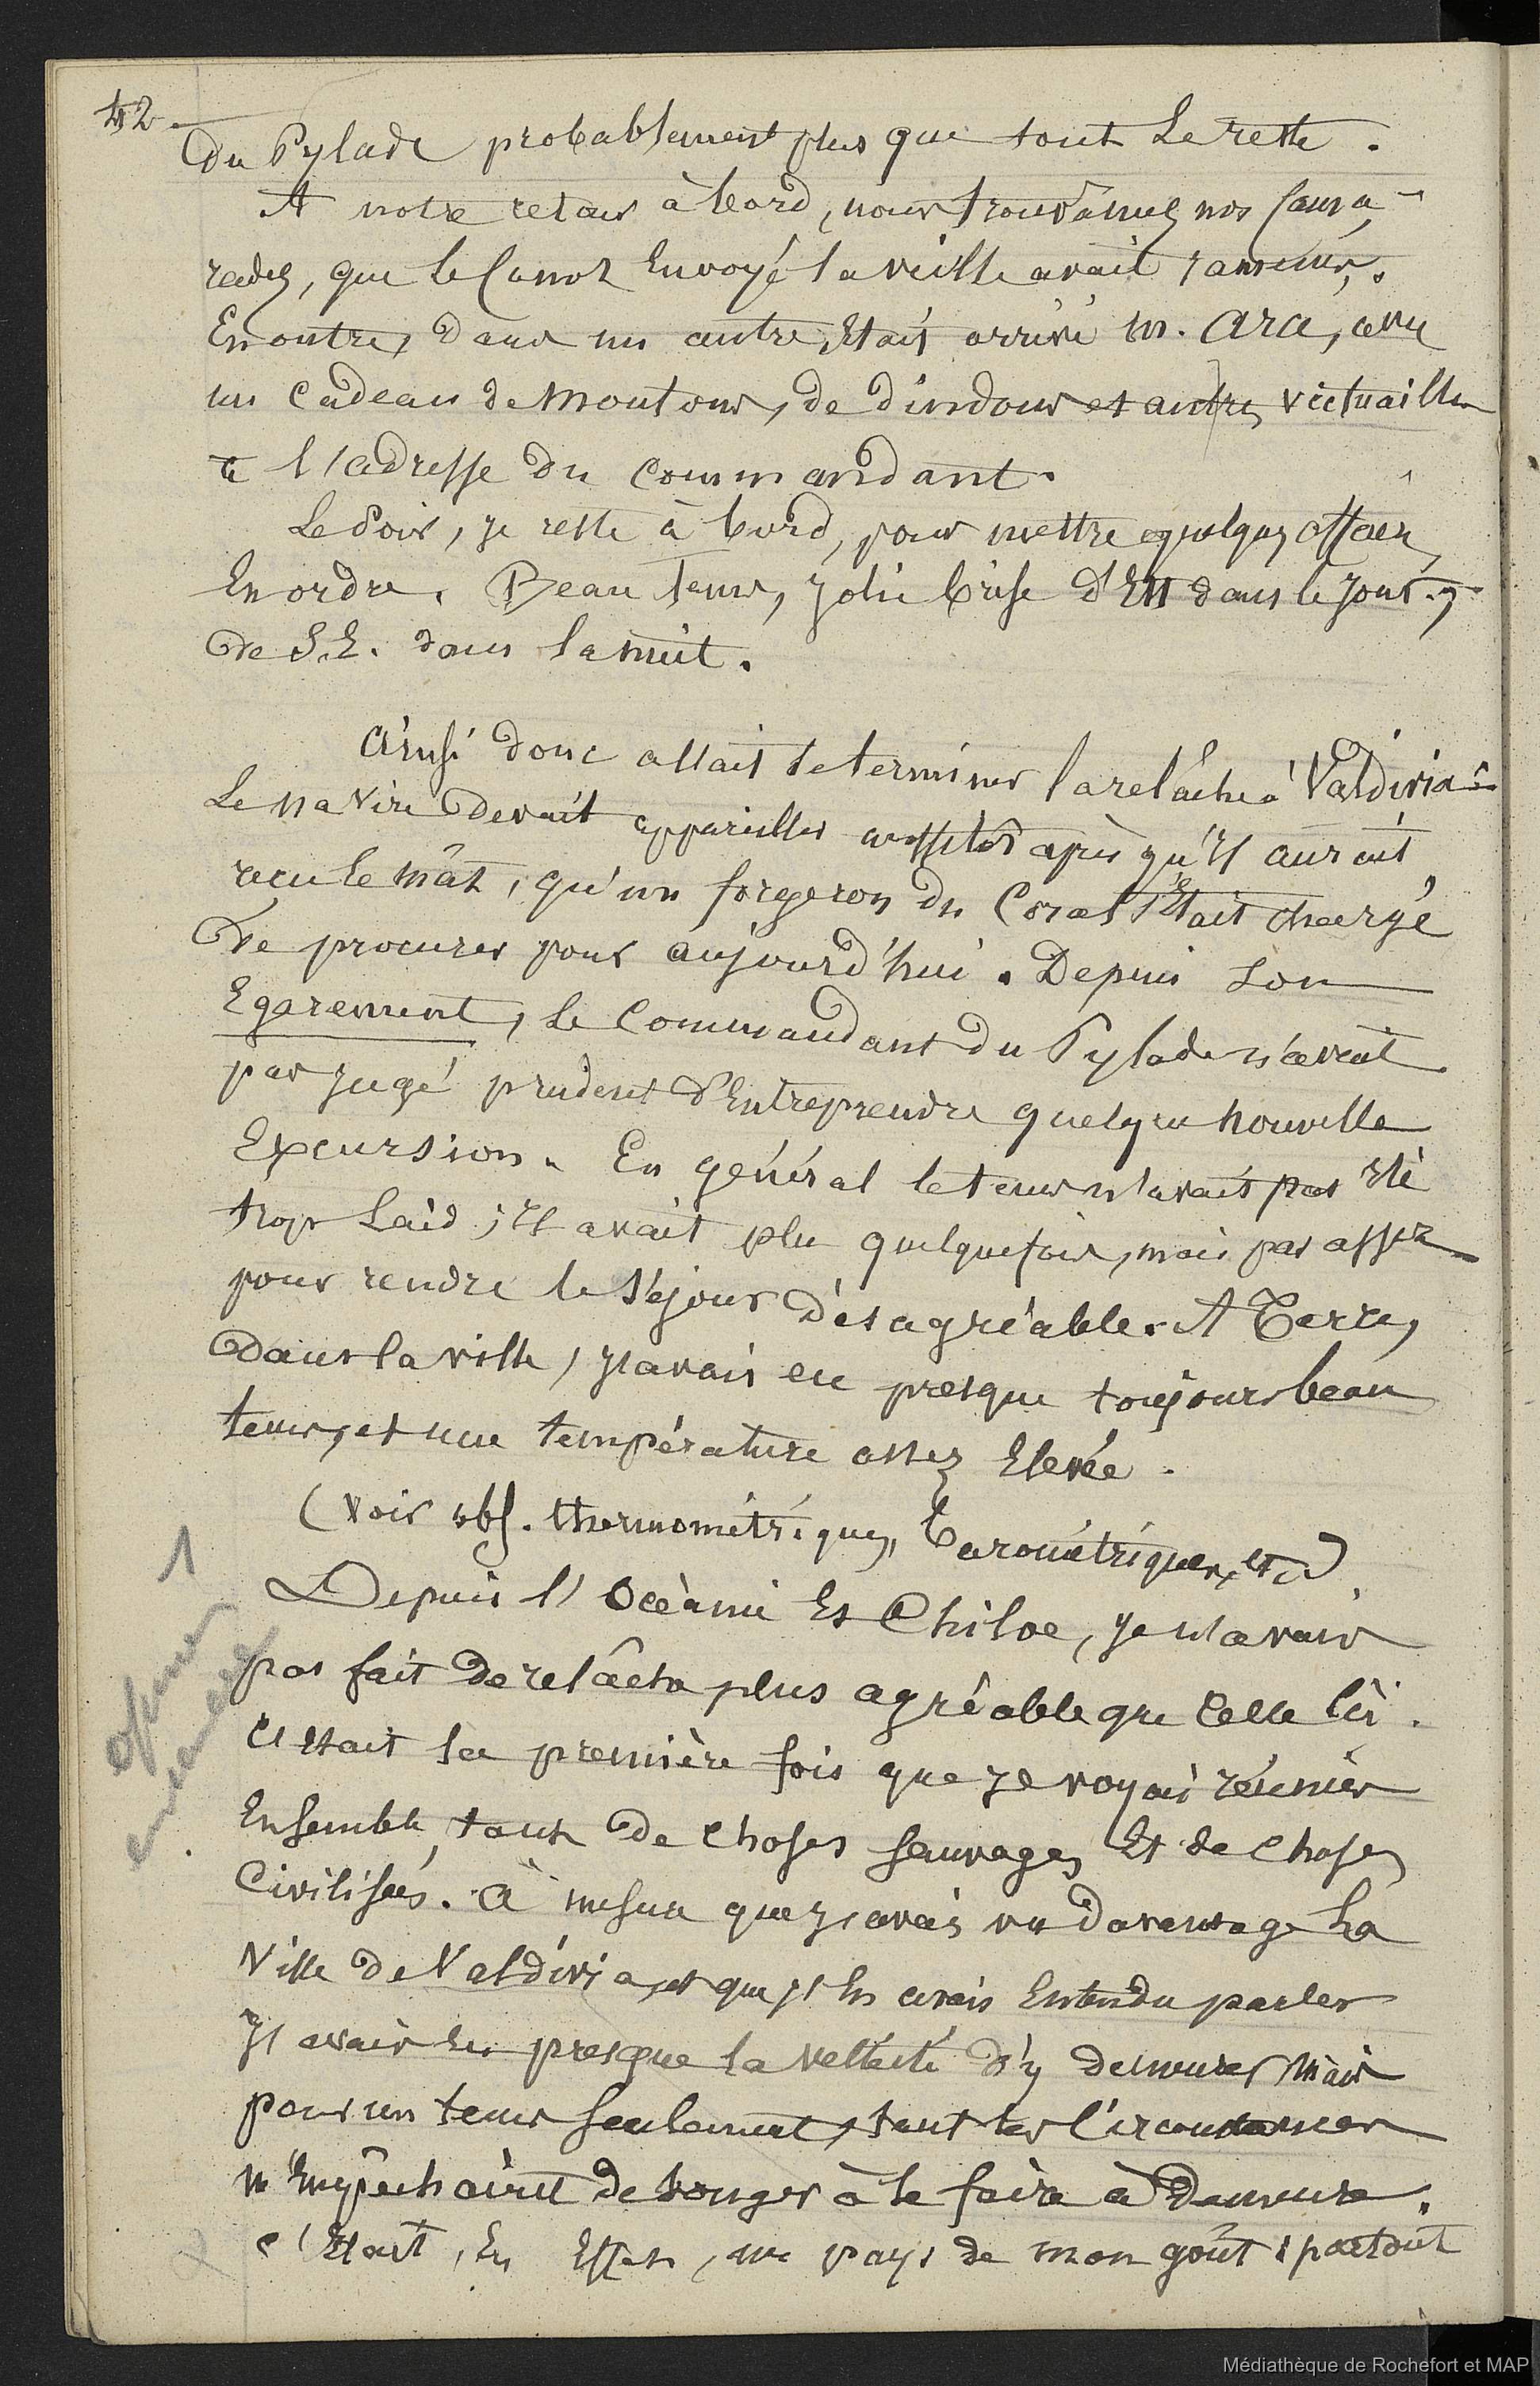 42
du Pylade probablement plus que tout le reste.
A notre retour à bord, nous trouvâmes nos Cama-
rades, que le Canot Envoyé la veille avait ramenés.
En outre, dans un autre, Etait arrivé M. Ara, avec
un Cadeau de moutons, de dindons et autres victuailles
à l'adresse du Commandant.
Le Soir, je reste à bord, pour mettre quelques affaires
En ordre. Beau tems, jolie brise d'Est dans le jour;
de S.E. dans la nuit.
Ainsi donc allait se terminer la relâche à Valdivia:
Le navire devait appareiller aussitôt après qu'il aurait
reçu le mât, qu'un forgeron du Coral s'Etait chargé
de procurer pour aujourd'hui. Depuis son
Egarement, le Commandant du Pylade n'avait
pas jugé prudent d'Entreprendre quelque nouvelle
Excursion. En général le tems n'avait pas Eté
trop laid; il avait plu quelquefois, mais pas assez
pour rendre le séjour désagréable. A Terre,
dans la ville, j'avais eu presque toujours beau
tems, et une température assez Elevée.
(Voir obs. thermométriques, barométriques, etc)
Depuis l'Océanie Et Chiloe, je n'avais
pas fait de relâche plus agréable que Celle là.
C'Etait la première fois que je voyais réunies
Ensemble tant de Choses Sauvages Et de Choses
Civilisées. A mesure que j'avais vu davantage la
Ville de Valdivia, et que j'En avais Entendu parler
J'avais Eu presque la velléité d'y demeurer, mais
pour un tems Seulement, tant les Circonstances
m'Empêchaient de songer à le faire à Demeure.
C'Etait, En Effet, un pays de mon goût; partout
1
Médiathèque de Rochefort et MAP